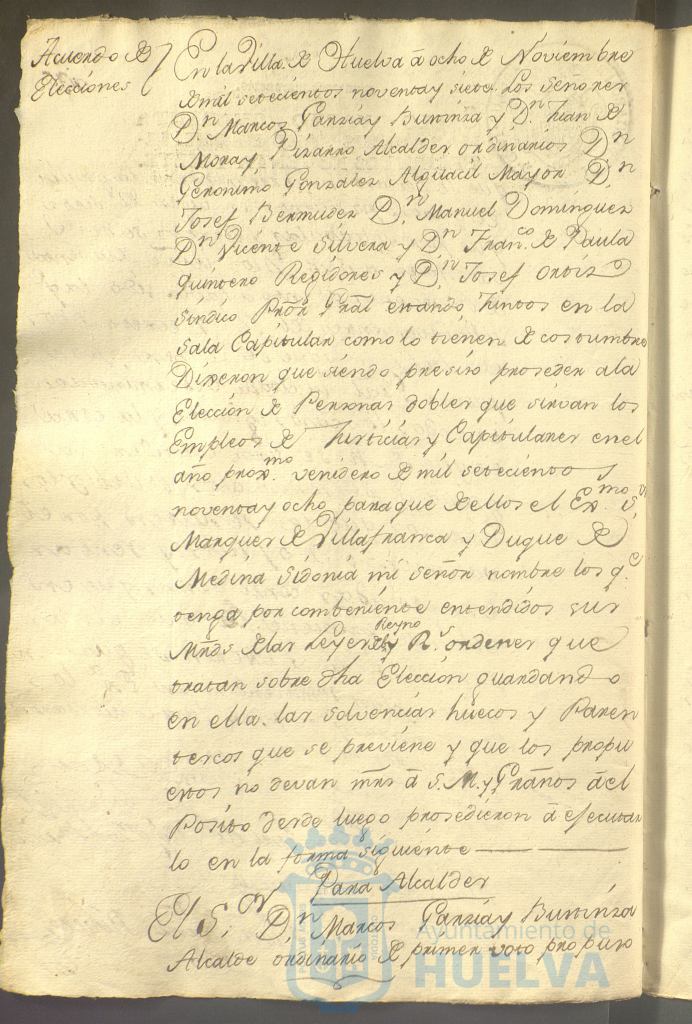 Acuerdo de
Elecciones
En la Villa de Huelva à ocho de Noviembre
de mil setecientos noventa y siete los señores
Dn. Marcos Garzia y Burinza y Dn. Juan de
Mora y Pizarro Alcaldes ordinarios Dn
Geronimo Gonzalez Alguacil Mayor Dn
Josef Bermudez Dn. Manuel Dominguez
Dn. Vicente Silvera y Dn. Franco. de Paula
quintero Regidores y Dn. Josef Ortiz
Sindico Pror. Gral estando Juntos en la
Sala Capitular como lo tienen de costumbre
Dixeron que siendo presiso proseder a la
Elección de Personas dobles que sirvan los
Empleos de Justicias y Capitulares en el
año proxmo. venidero de mil setecientos
noventa y ocho para que de ellos el Exmo. Sr.
Marques de Villafranca y Duque de
Medina Sidonia mi señor nombre los qe.
tenga por combeniente entendidos sus
Mrds de las Leyes del Reyno y Rs. ordenes que
tratan sobre dha Elección guardando
en ella las solvencias huecos y Paren
tescos que se previene y que los propu
estos no devan mrs à S. M. y Granos àel
Posito desde luego prosedieron à efecutar
lo en la forma siguiente
Para Alcaldes
El S.or Dn Marcos Garzia y Burinza
Alcalde ordinario de primer voto propuso
Ayuntamiento de
HUELVA